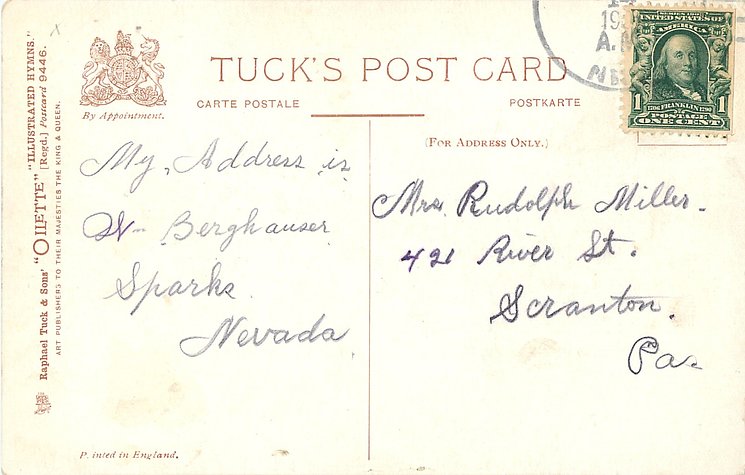 Raphael Tuck & Sons' "OILETTE" "ILLUSTRATED HYMNS."
[Regd.] Postcard 9446.
ART PUBLISHERS TO THEIR MAJESTIES THE KING & QUEEN.
By Appointment.
TUCK'S POST CARD
CARTE POSTALE
POSTKARTE
(FOR ADDRESS ONLY.)
A.M
SERIES 1902
UNITED STATES OF
AMERICA
1706 FRANKLIN 1790
1 1
POSTAGE
ONE CENT
My Address is
Berghauser
Sparks
Nevada
Mrs. Rudolph Miller.
421 River St.
Scranton.
Pa.
P inted in England.